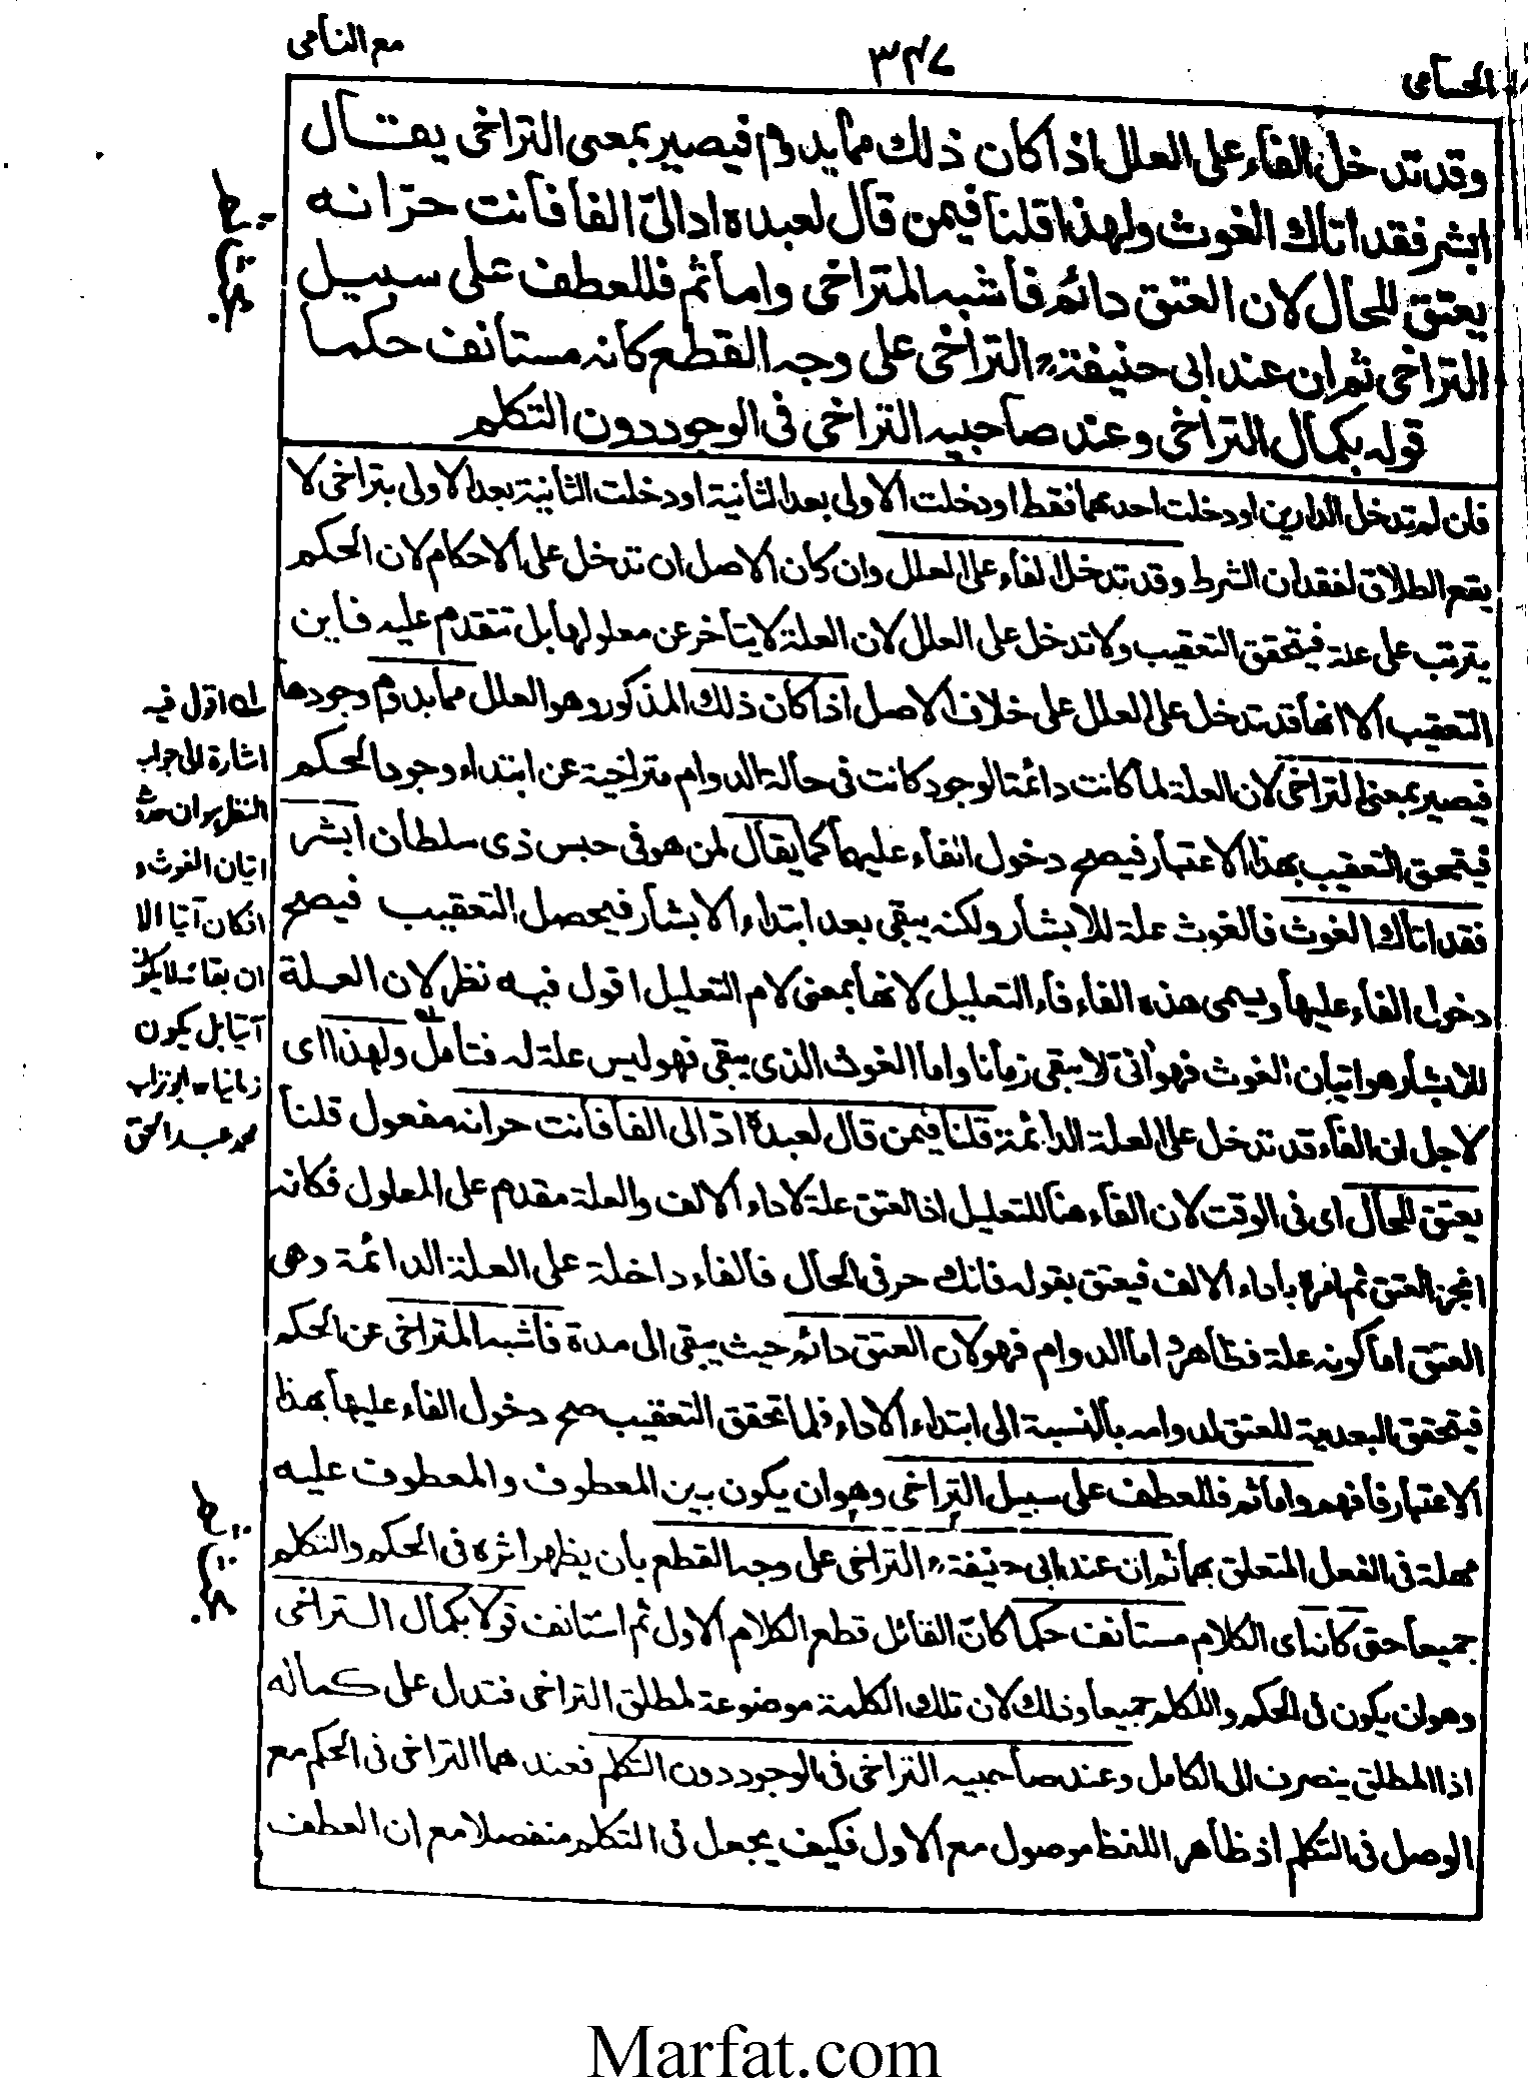 الحسامي
٣٤٧
مع النامي
وقد تدخل الفاء على العلل اذا كان ذلك مما يدوم فيصير بمعنى التراخي يقال
ابشر فقد اتاك الغوث ولهذا قلنا فيمن قال لعبده اد الىّ الفا فانت حرّ انه
يعتق للحال لان العتق دائم فاشبه المتراخي واما ثم فللعطف على سبيل
التراخي ثم ان عند ابي حنيفة التراخي على وجه القطع كانه مستانف حكما
قوله بكمال التراخي وعند صاحبيه التراخي في الوجود دون التكلم
فان لم تدخل الدارين او دخلت احدهما فقط او دخلت الاولى بعد الثانية او دخلت الثانية بعد الاولى بتراخي لا
يقع الطلاق لفقدان الشرط وقد تدخل الفاء على العلل وان كان الاصل ان تدخل على الاحكام لان الحكم
يترتب على علة فيتحقق التعقيب ولا تدخل على العلل لان العلة لا يتأخر عن معلولها بل تتقدم عليه فاين
التعقيب الا انها قد تدخل على العلل على خلاف الاصل اذا كان ذلك المذكور وهو العلل مما يدوم وجودها
فيصير بمعنى التراخي لان العلة لما كانت دائمة الوجود كانت في حالة الدوام متراخية عن ابتداء وجود الحكم
فيتحقق التعقيب بهذا الاعتبار فيصح دخول الفاء عليها كما يقال لمن هو في حبس ذي سلطان ابشر
فقد اتاك الغوث فالغوث علة للابشار ولكنه يبقى بعد ابتداء الابشار فيحصل التعقيب فيصح
دخول الفاء عليها ويسمى هذه الفاء فاء التعليل لانها بمعنى لام التعليل اقول فيه نظر لان العلة
للابشار هو اتيان الغوث فهو انيّ لا يبقى زمانا واما الغوث الذي يبقى فهو ليس علة له فتأمل ولهذا اى
لاجل ان الفاء قد تدخل على العلة الدائمة قلنا فيمن قال لعبده اد الى الفا فانت حر انه مفعول قلنا
يعتق للحال اى في الوقت لان الفاء هنا للتعليل اذ العتق علة لاداء الالف والعلة مقدم على المعلول فكانه
انجز العتق ثم امره باداء الالف فيعتق بقوله فانك حر في الحال فالفاء داخلة على العلة الدائمة وهى
العتق اما كونه علة فظاهر واما الدوام فهو لان العتق دائم حيث يبقى الى مدة فاشبه المتراخي عن الحكم
فيتحقق البعدية للعتق لدوامه بالنسبة الى ابتداء الاداء فلما تحقق التعقيب صح دخول الفاء عليها بهذا
الاعتبار فافهم واما ثم فللعطف على سبيل التراخي وهو ان يكون بين المعطوف والمعطوف عليه
مهلة في الفعل المتعلق بهما ثم ان عند ابي حنيفة التراخي على وجه القطع بان يظهر اثره في الحكم والتكلم
جميعا حق كانه اى الكلام مستانف حكما كان القائل قطع الكلام الاول ثم استانف قولا بكمال التراخي
وهو ان يكون في الحكم والتكلم جميعا وذلك لان تلك الكلمة موضوعة لمطلق التراخي فتدل على كماله
اذ المطلق ينصرف الى الكامل وعند صاحبيه التراخي في الوجود دون التكلم فعندهما التراخي في الحكم مع
الوصل في التكلم اذ ظاهر اللفظ موصول مع الاول فكيف يجعل في التكلم منفصلا مع ان العطف
له اقول فيه
اشارة الى جواب
النظر بان
اتيان الغوث و
ان كان آنيا الا
ان بقائه لا يكون
آنيا بل يكون
زمانيا ابو تراب
محمد عبد الحق
Marfat.com